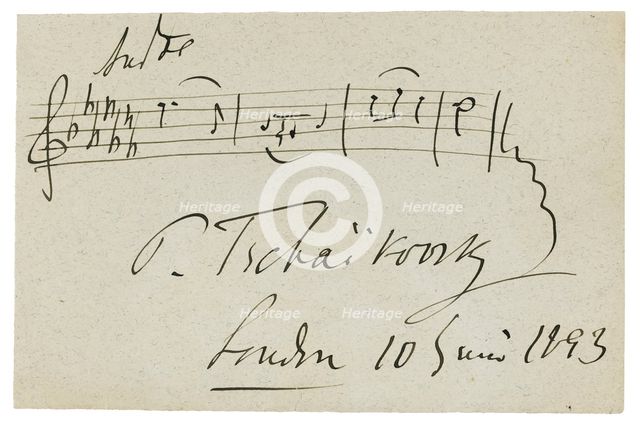 And te
P. Tschaïkovsky
London 10 Juin 1893
Heritage Heritage
©
Heritage Heritage
Heritage Heritage